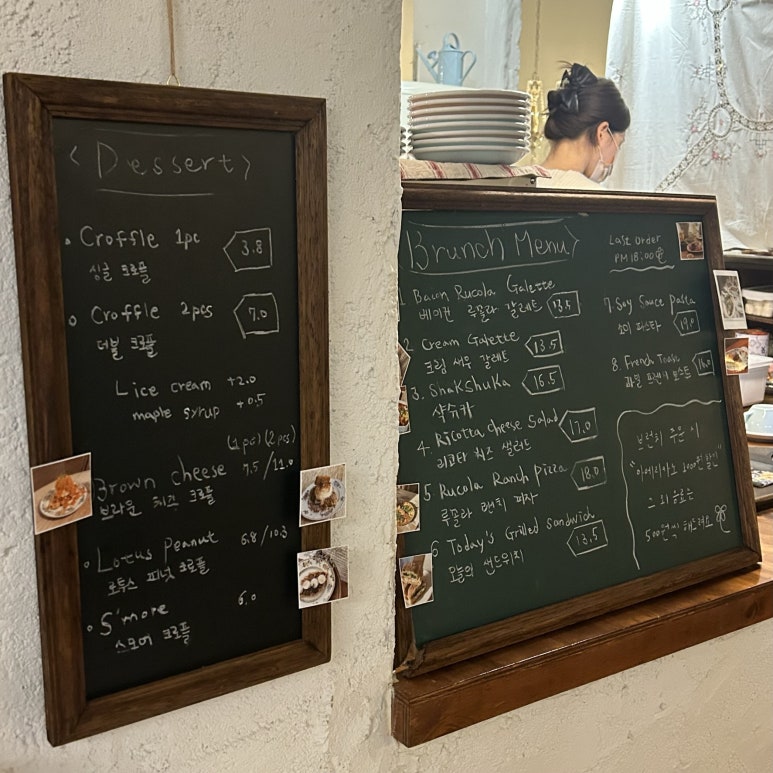 <Dessert>
Croffle 1pc 3.8
싱글 크로플
Croffle 2pcs 7.0
더블 크로플
Lice cream +2.0
maple syrup +0.5
(1pc) (2pcs)
Brown cheese 7.5/11.0
브라운 치즈 크로플
Lotus Peanut 6.8/10.3
로투스 피넛 크로플
S'more 6.0
스모어 크로플
<Brunch Menu>
Last Order
PM 18:00
1. Bacon Rucola Galette
베이컨 루꼴라 갈레트 13.5
2. Cream Galette 13.5
크림 새우 갈레트
3. Shakshuka 16.5
샥슈카
4. Ricotta cheese Salad 17.0
리코타 치즈 샐러드
5. Rucola Ranch pizza 18.0
루꼴라 랜치 피자
6 Today's Grilled Sandwich 13.5
오늘의 샌드위치
7. Soy Sauce pasta
소이 파스타 19.0
8. French Toast
과일 프렌치 토스트
브런치 주문 시
"아메리카노 2000원 할인"
그 외 음료는
500원씩 해드려요